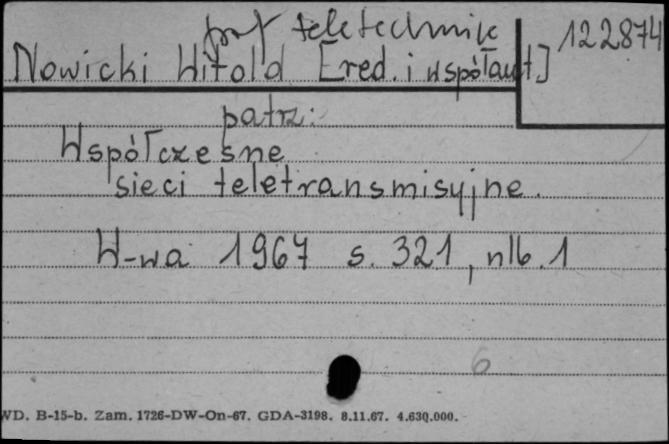 prof teletechnik
122874
Nowicki Witold [red. i współaut]
patrz:
Współczesne
sieci teletransmisyjne.
W-wa 1967 s. 321, nlb. 1
6
WD. B-15-b. Zam. 1726-DW-On-67. GDA-3198. 8.11.67. 4.630.000.